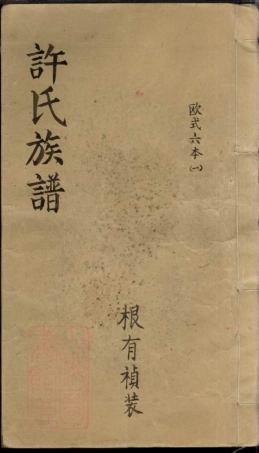 許氏族譜
欧式六本(一)
根有禎装